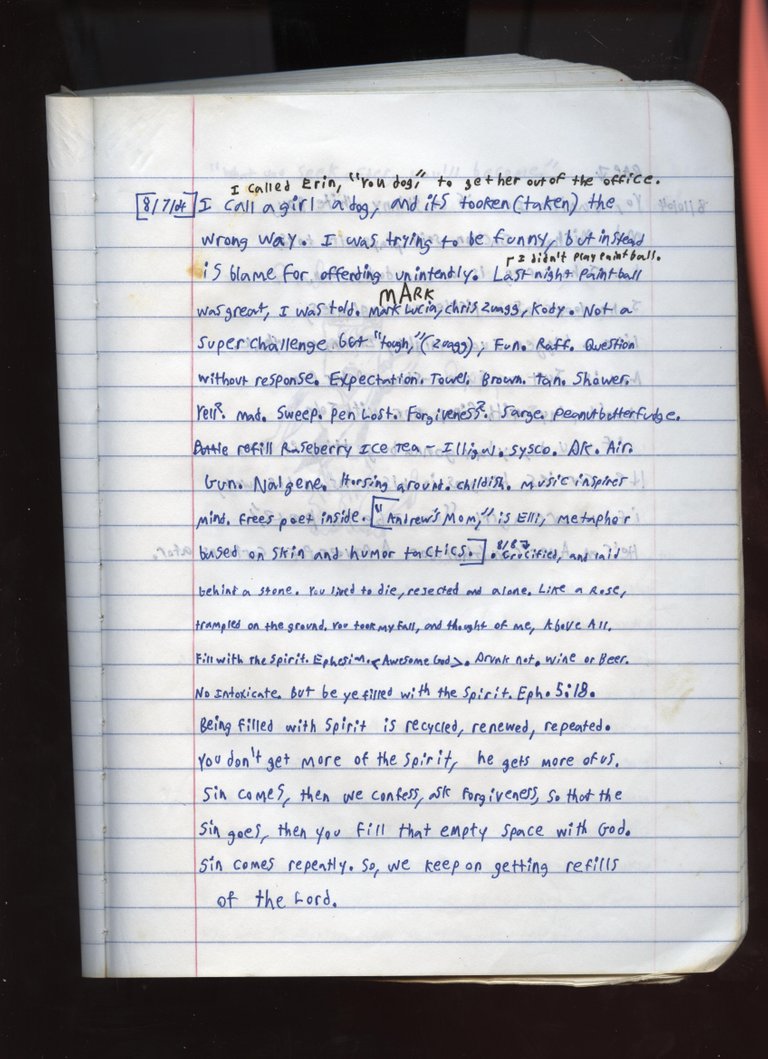 I called Erin, "You dog," to get her out of the office.
[8/7/04] I call a girl a dog, and it's tooken (taken) the
wrong way. I was trying to be funny, but instead
I didn't play paintball.
is blame for offending unintendly. Last night Paintball
MARK
was great, I was told. Mark Lucia, Chris Zuagg, Kody. Not a
super challenge but "tough," (Zuagg), Fun. Raff. Question
without response. Expectation. Towel. Brown. Tan. Shower.
Yell? Mad. Sweep. Pen Lost. Forgiveness? Sarge. Peanutbutterfudge.
Bottle refill Raseberry Ice Tea - Illigal. Sysco. AK. Air.
Gun. Nalgene. Horsing around. Childish. Music inspires
mind. Frees poet inside. ["Andrew's Mom," is Elli, metaphor
based on skin and humor tactics.] 8/8 . Crucified, and laid
behind a stone. You lived to die, rejected and alone. Like a Rose,
trampled on the ground. You took my fall, and thought of me, Above All.
Fill with the Spirit. Ephesian. <Awesome God>. Drunk not. wine or Beer.
No Intoxicate. But be ye filled with the Spirit. Eph. 5:18.
Being filled with Spirit is recycled, renewed, repeated.
You don't get more of the Spirit, he gets more of us.
Sin comes, then we confess, ask forgiveness, so that the
sin goes, then you fill that empty space with God.
Sin comes repeatly. So, we keep on getting refills
of the Lord.